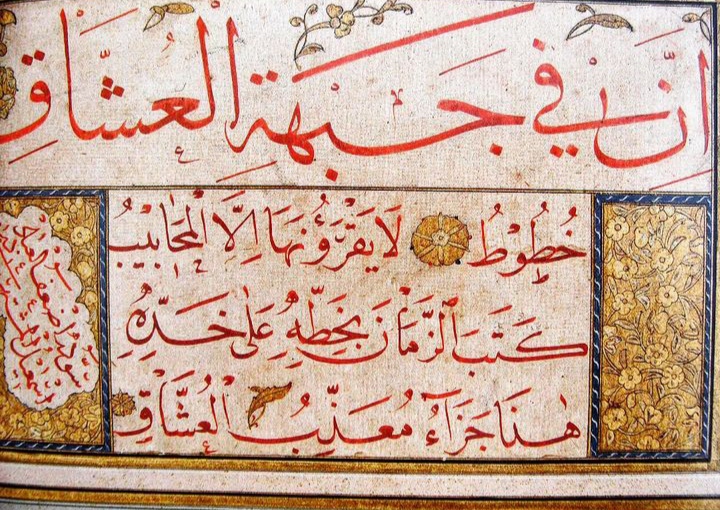 اِنَّ فِي جَبْهَةِ الْعُشَّاقِ
خُطُوطٌ لَا يَقْرَؤُنَهَا اِلَّا الْمَحَابِيبُ
كَتَبَ الزَّمَانُ بِخَطِّهِ عَلَى خَدِّهِ
هٰذَا جَزَآءُ مُعَذِّبِ الْعُشَّاقِ